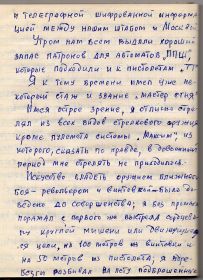 и телеграфной шифрованной информа-
цией между нашим штабом и Москвой.
Утром нам всем выдали хороший
запас патронов для автоматов "ППШ",
которые подходили и к пистолетам "ТТ".
Я к тому времени имел уже не-
который стаж и звание "Мастер огня".
Имея острое зрение, я отлично стре-
лял из всех видов стрелкового оружия
кроме пулемета системы "Максим", из
которого, сказать по правде, в довоенный
период мне стрелять не приходилось.
Искусство владеть оружием ближнего
боя - револьвером и винтовкой - было до-
ведено до совершенства; я без промаха
поражал с первого же выстрела
круглой мишени или движущую-
ся цель, на 100 метров из винтовки и
на 50 метров из пистолета; я
разбивал на лету подброшенные